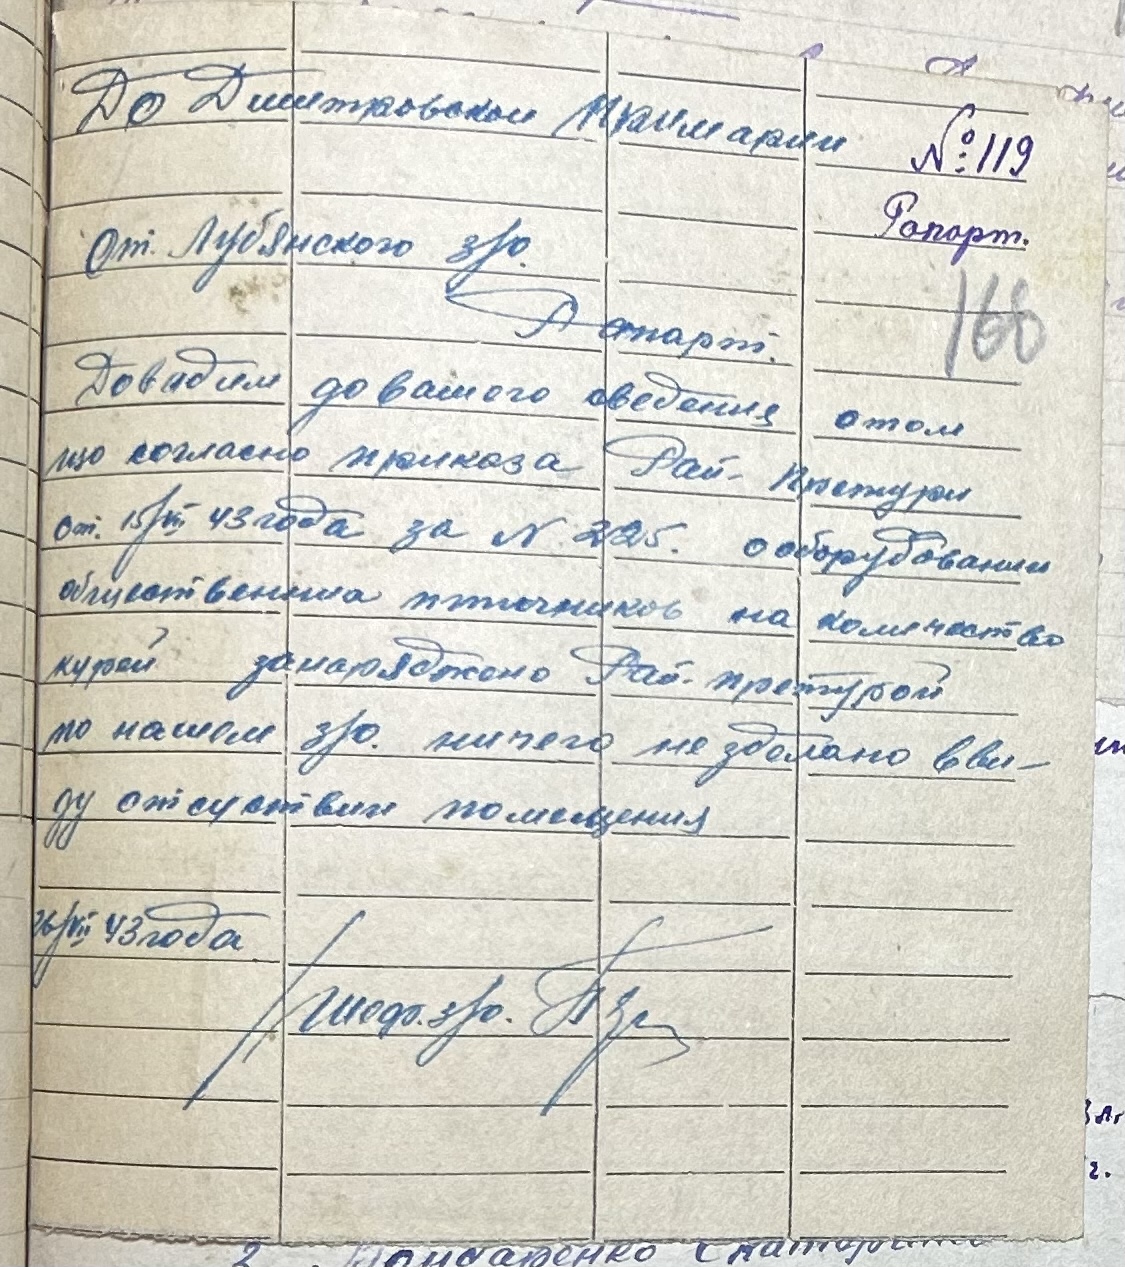 До Димитровской Примарии
№ 119
Рапорт.
От. Лубянского з/о.
Рапарт.
166
Довидим до вашого сведения отом
що согласно приказа Рай-претури
от. 15/VII 43 года за N 225. о оборудовании
общественниа птичников на количество
курей занаряджено Рай-претурой
по нашем з/о. ничего не зделано вви-
ду отсуствии помещения
26/VII 43 года
Шеф. з/о.
2. Бондаренко